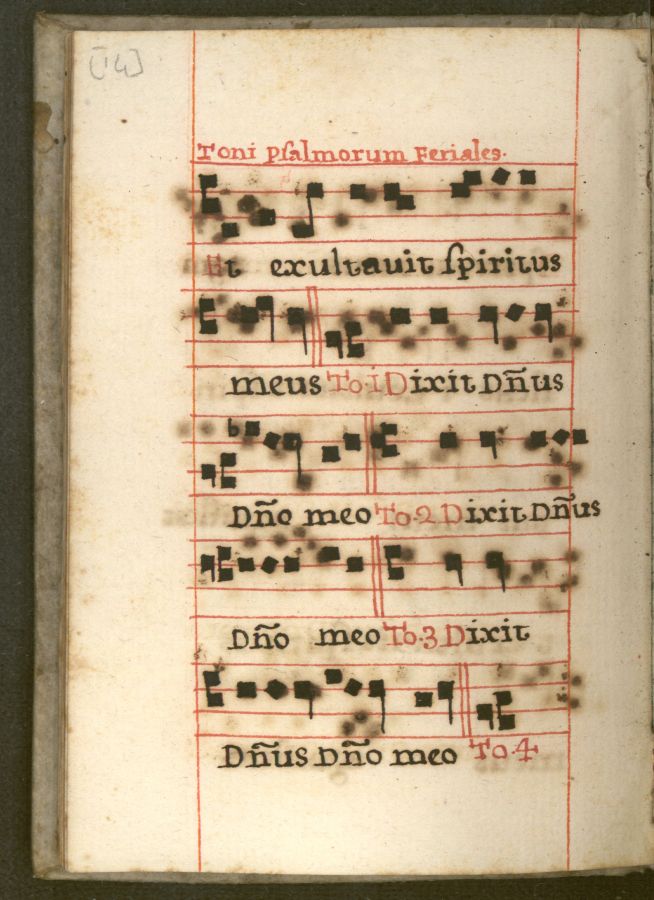 [14]
Toni Pſalmorum Feriales.
Et exultauit ſpiritus
meus To.1 Dixit Dn̄us
Dn̄o meo To.2 Dixit Dn̄us
Dn̄o meo To.3 Dixit
Dn̄us Dn̄o meo To.4